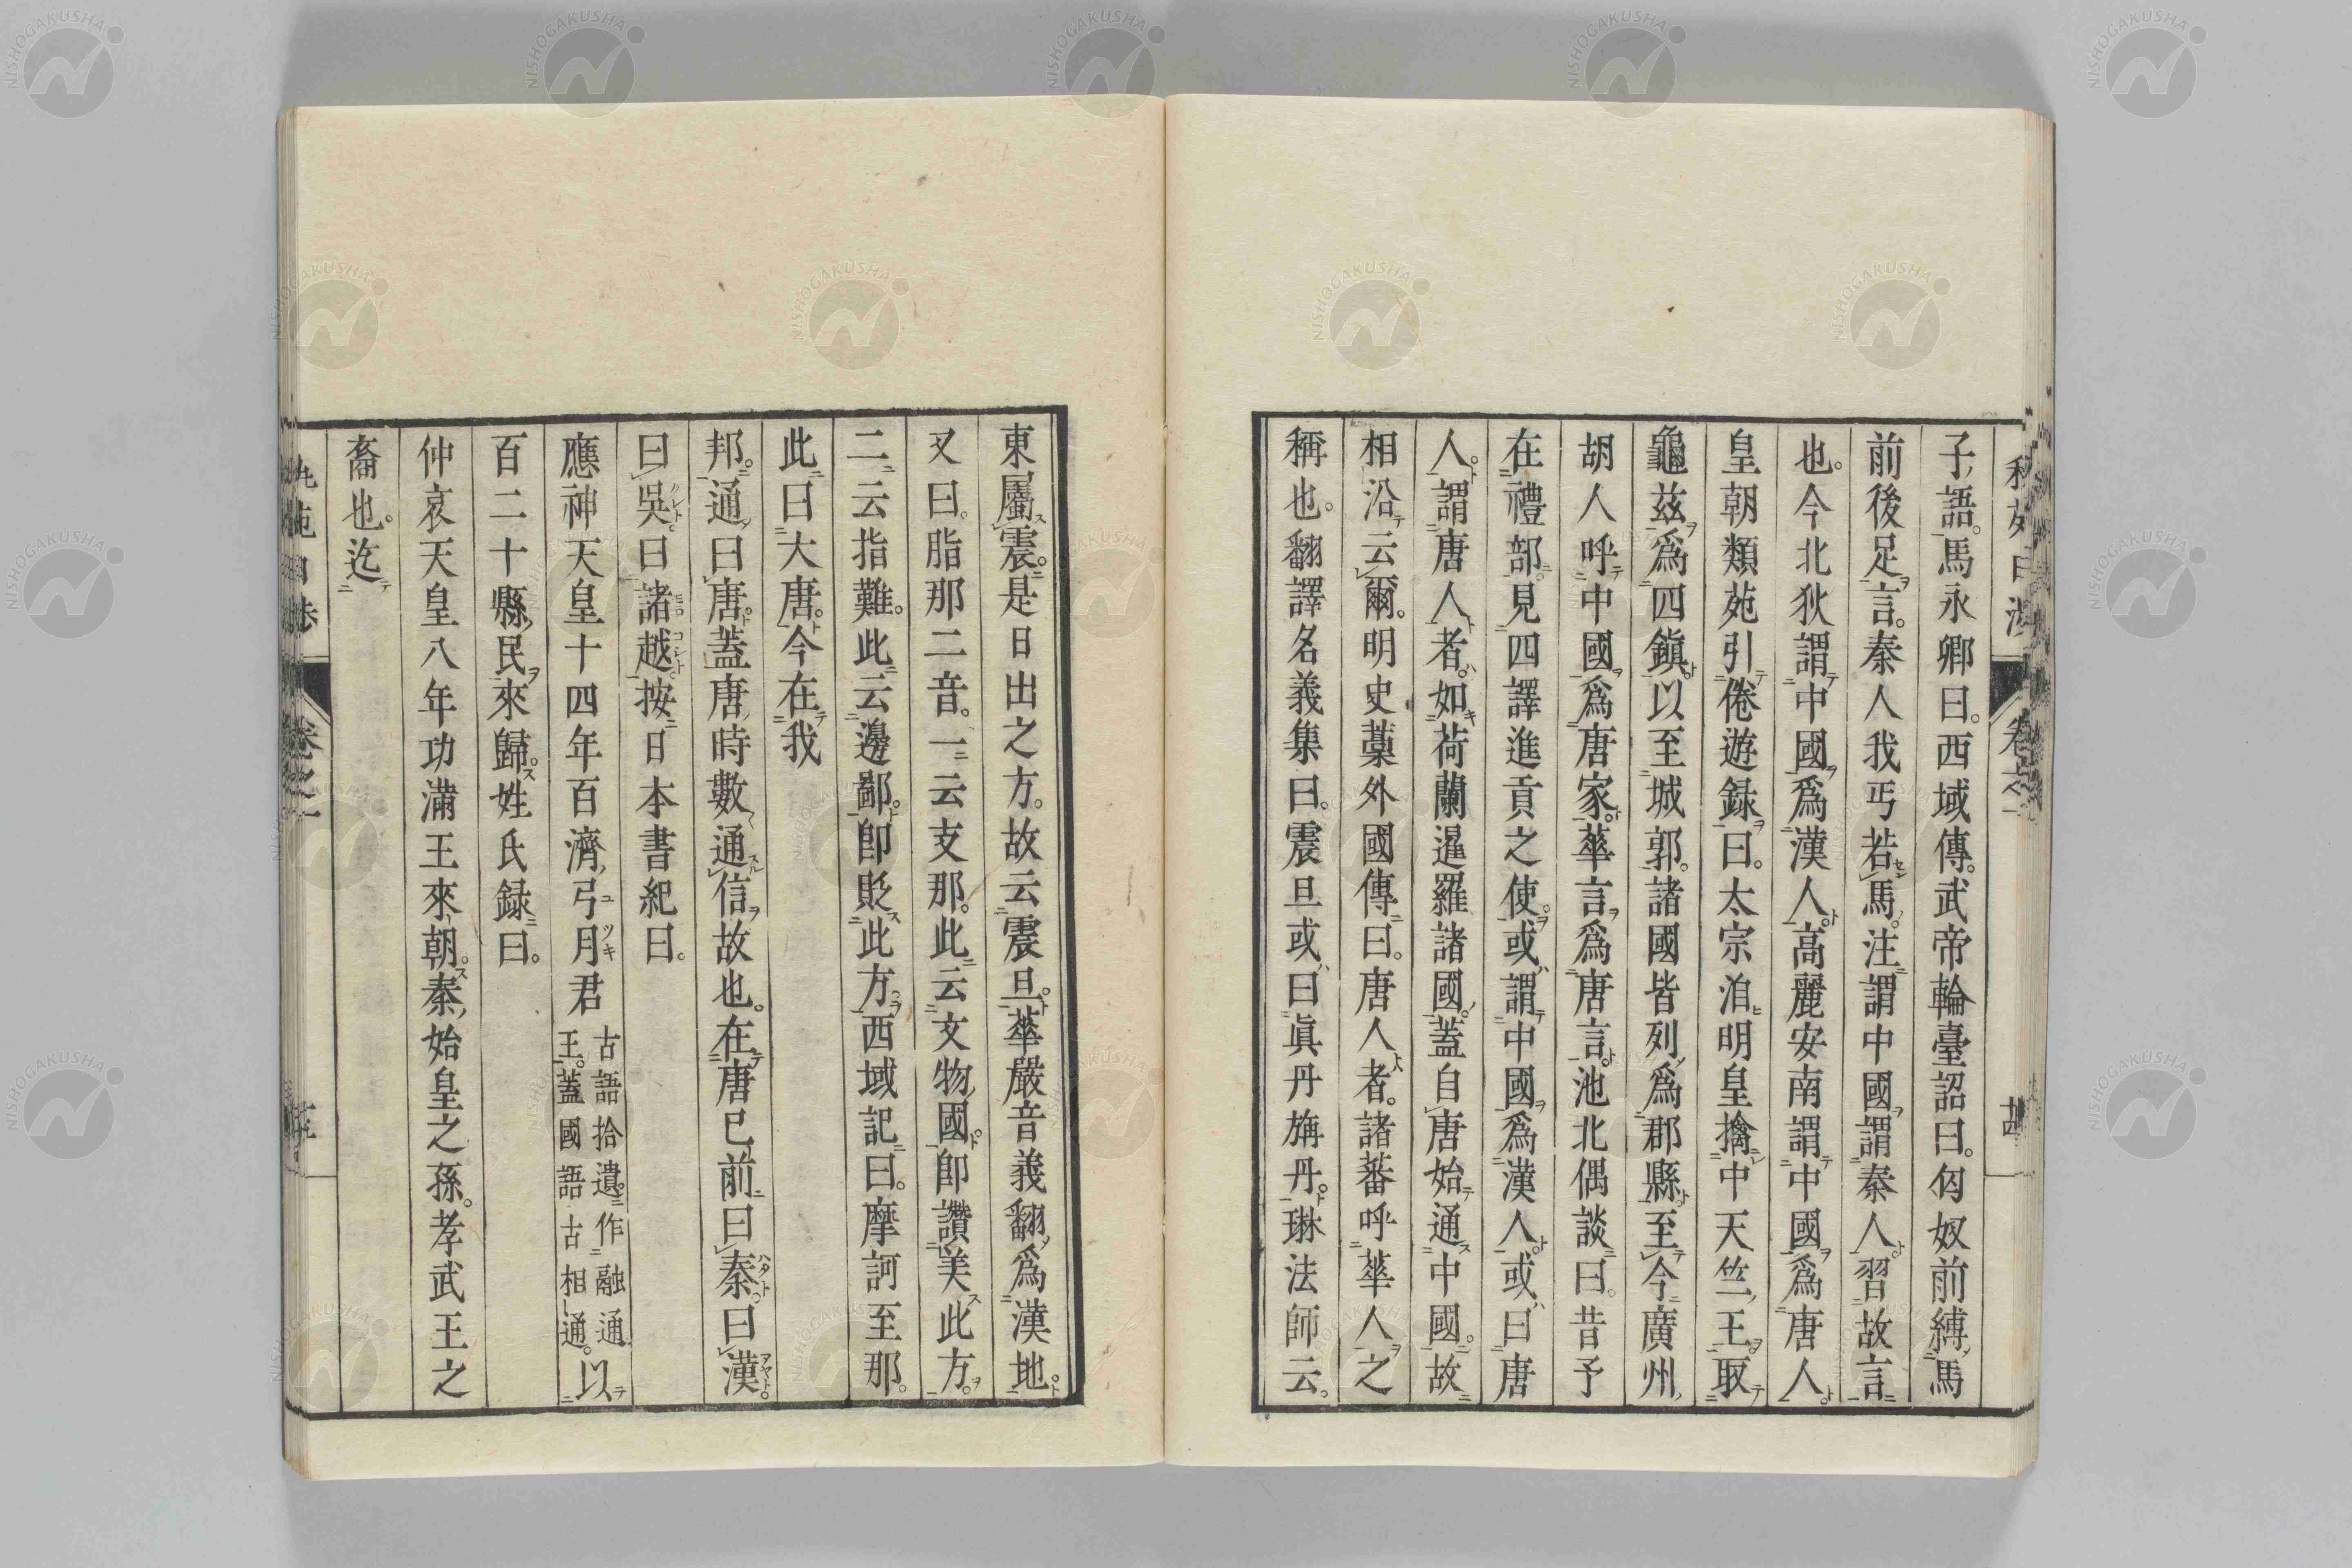 子語。馬永卿曰。西域傳。武帝輪臺詔曰。匈奴前縛馬
前後足言。秦人我丐若馬。注謂中國謂秦人習故言
也。今北狄謂中國爲漢人。高麗安南謂中國爲唐人。
皇朝類苑引倦遊録曰。太宗洎明皇擒中天竺王。取
龜兹爲四鎭。以至城郭。諸國皆列爲郡縣至今廣州
胡人呼中國爲唐家。華言爲唐言。池北偶談曰。昔予
在禮部。見四譯進貢之使。或謂中國爲漢人。或曰唐
人。謂唐人者。如荷蘭暹羅諸國。蓋自唐始通中國。故
相沿云爾。明史藁外國傳曰。唐人者。諸蕃呼華人之
稱也。翻譯名義集曰。震旦或曰眞丹旃丹。琳法師云。
東屬震。是日出之方。故云震旦。華嚴音義翻爲漢地。
又曰。脂那二音。一云支那。此云文物國。卽讚美此方。
二云指難。此云邊鄙。卽貶此方。西域記曰。摩訶至那。
此曰大唐。今在我
邦。通曰唐。蓋唐時數通信故也。在唐已前曰秦曰漢
曰吳曰諸越。按日本書紀曰。
應神天皇十四年百濟弓月君古語拾遺作融通
王。蓋國語古相通。以
百二十縣民來歸。姓氏録曰。
仲哀天皇八年功滿王來朝。秦始皇之孫。孝武王之
裔也。迄
卷之一